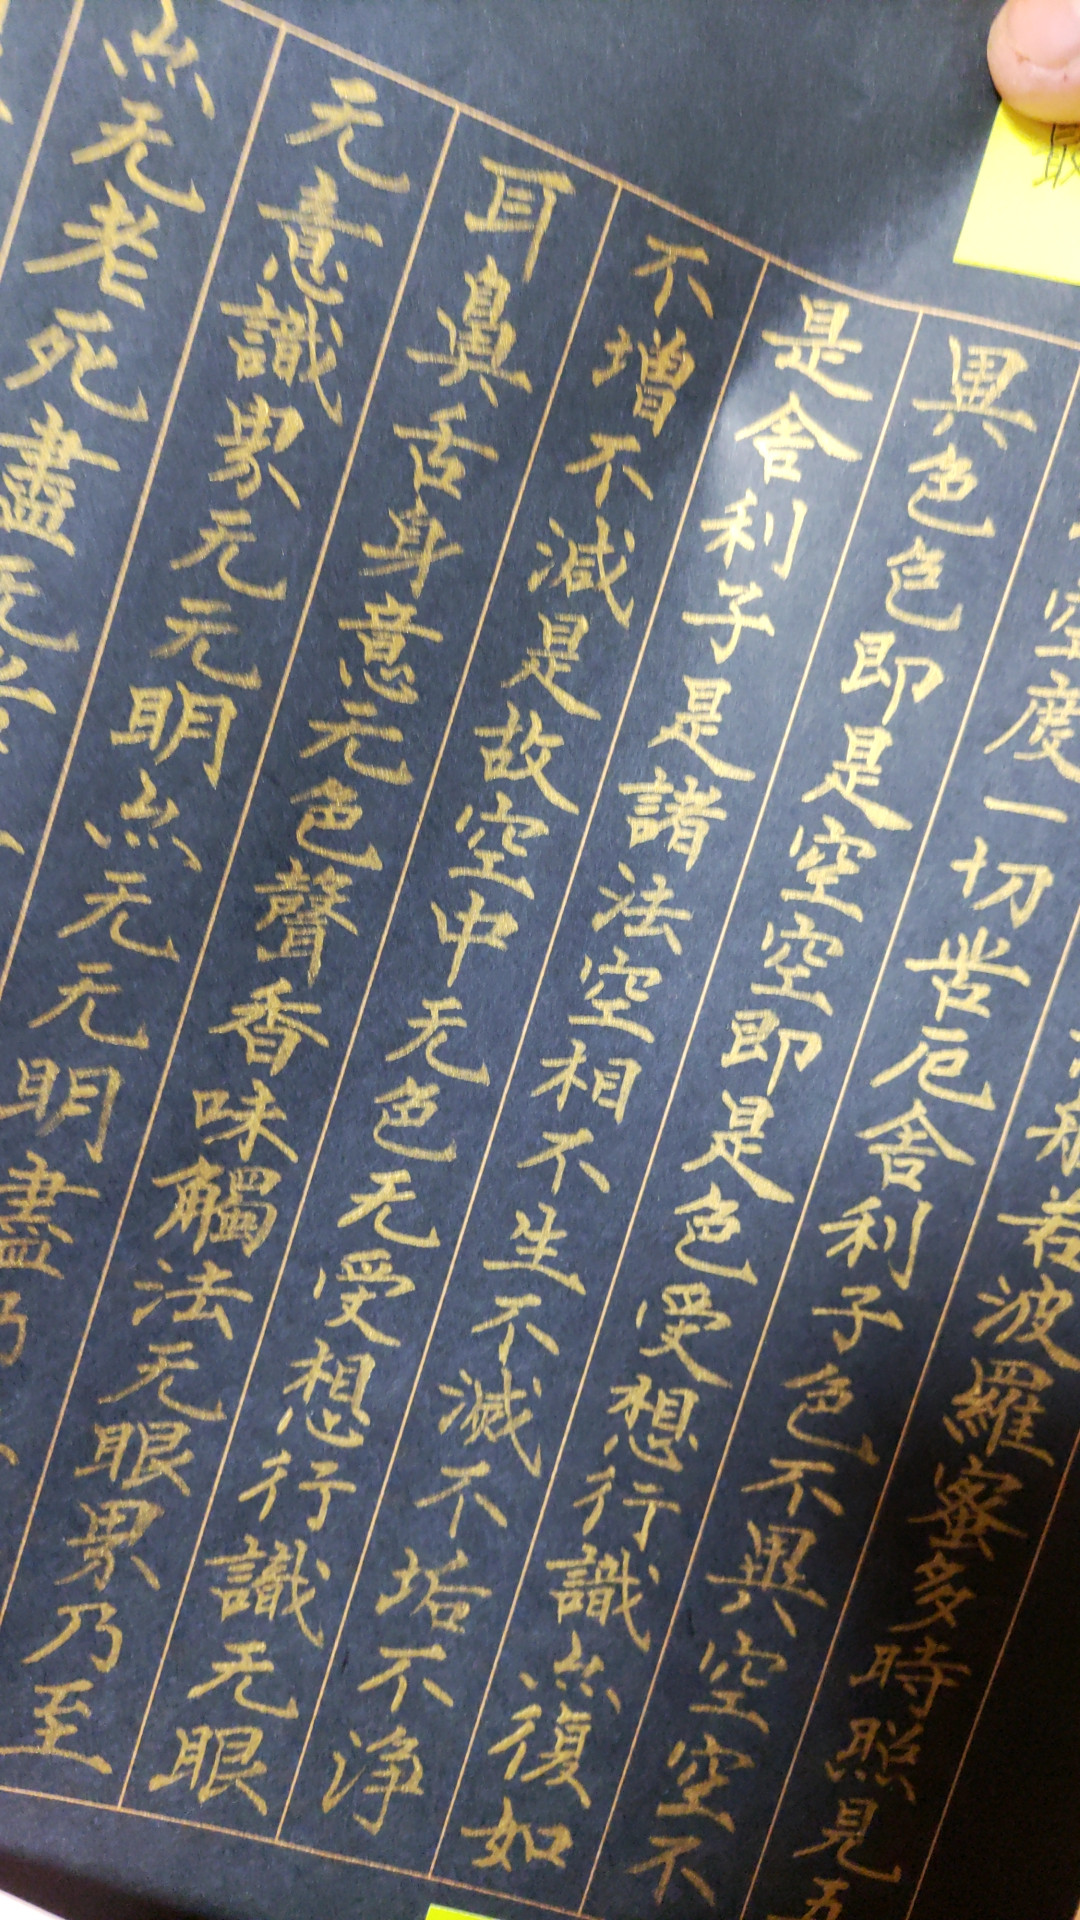 般若波羅蜜多時照見五
空度一切苦厄舍利子色不異空空不
異色色即是空空即是色受想行識亦復如
是舍利子是諸法空相不生不滅不垢不淨
不增不減是故空中无色无受想行識无眼
耳鼻舌身意无色聲香味觸法无眼界乃至
无意識界无无明亦无无明盡乃
亦无老死盡无苦